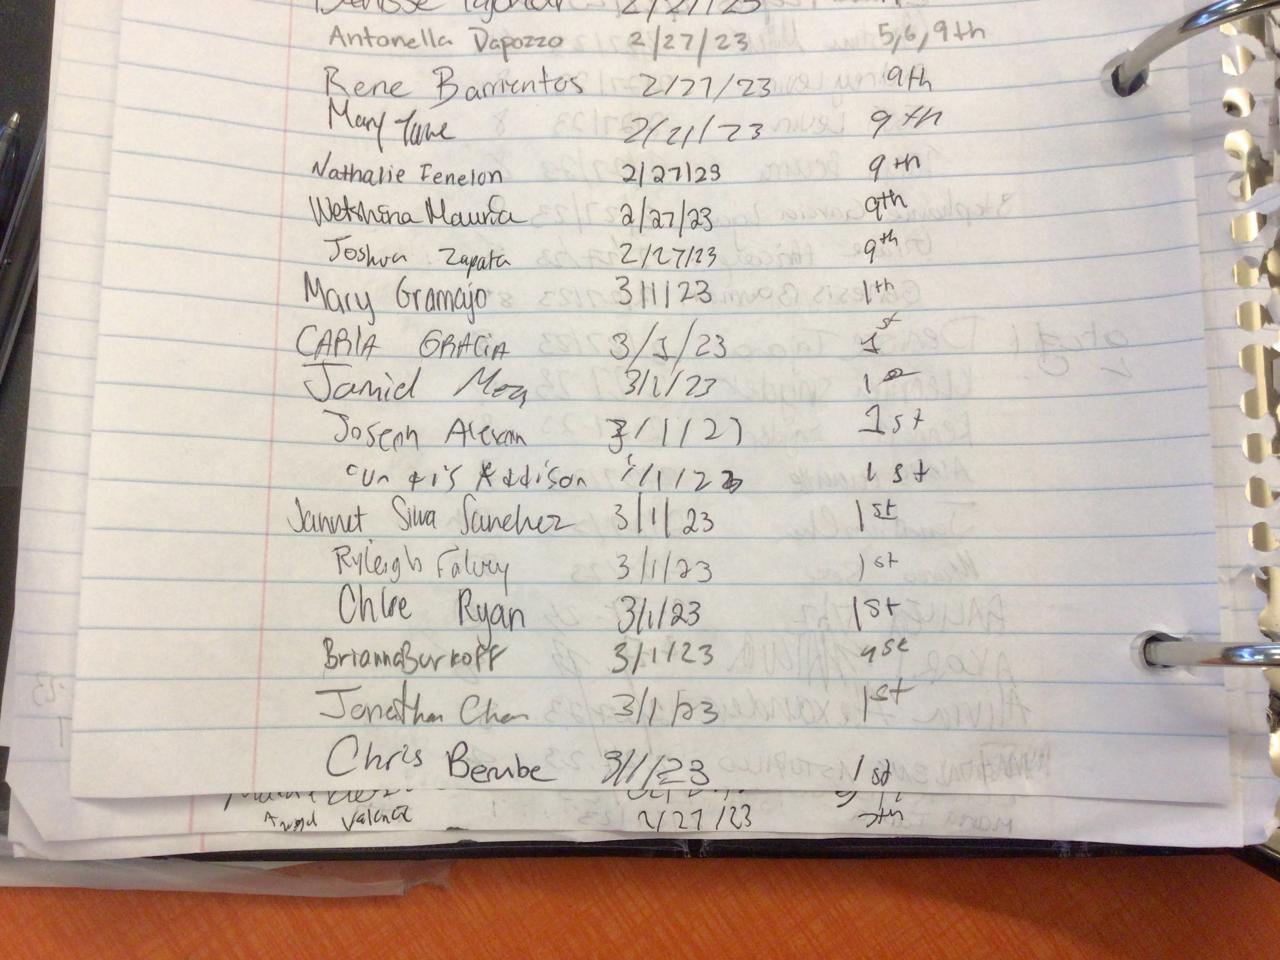 2/27/23
Antonella Dapozzo 2/27/23 5,6,9th
Rene Barrientos 2/27/23 9th
Mary Jane 2/21/23 9th
Nathalie Fenelon 2/27/23 9th
2/27/23 9th
Joshua Zapata 2/27/23 9th
Mary Gramajo 3/1/23 1th
CARlA GRACiA 3/1/23 1st
Jamid 3/1/23
Joseph 3/1/23 1st
Addison 1st
Jannet Silva Sanchez 3/1/23 1st
Ryleigh Falvey 3/1/23 1st
Chloe Ryan 3/1/23 1st
Brianna Burkoff 3/1/23 1st
Jonathan Chan 3/1/23 1st
Chris Berube 3/1/23 1st
2/27/23 7th